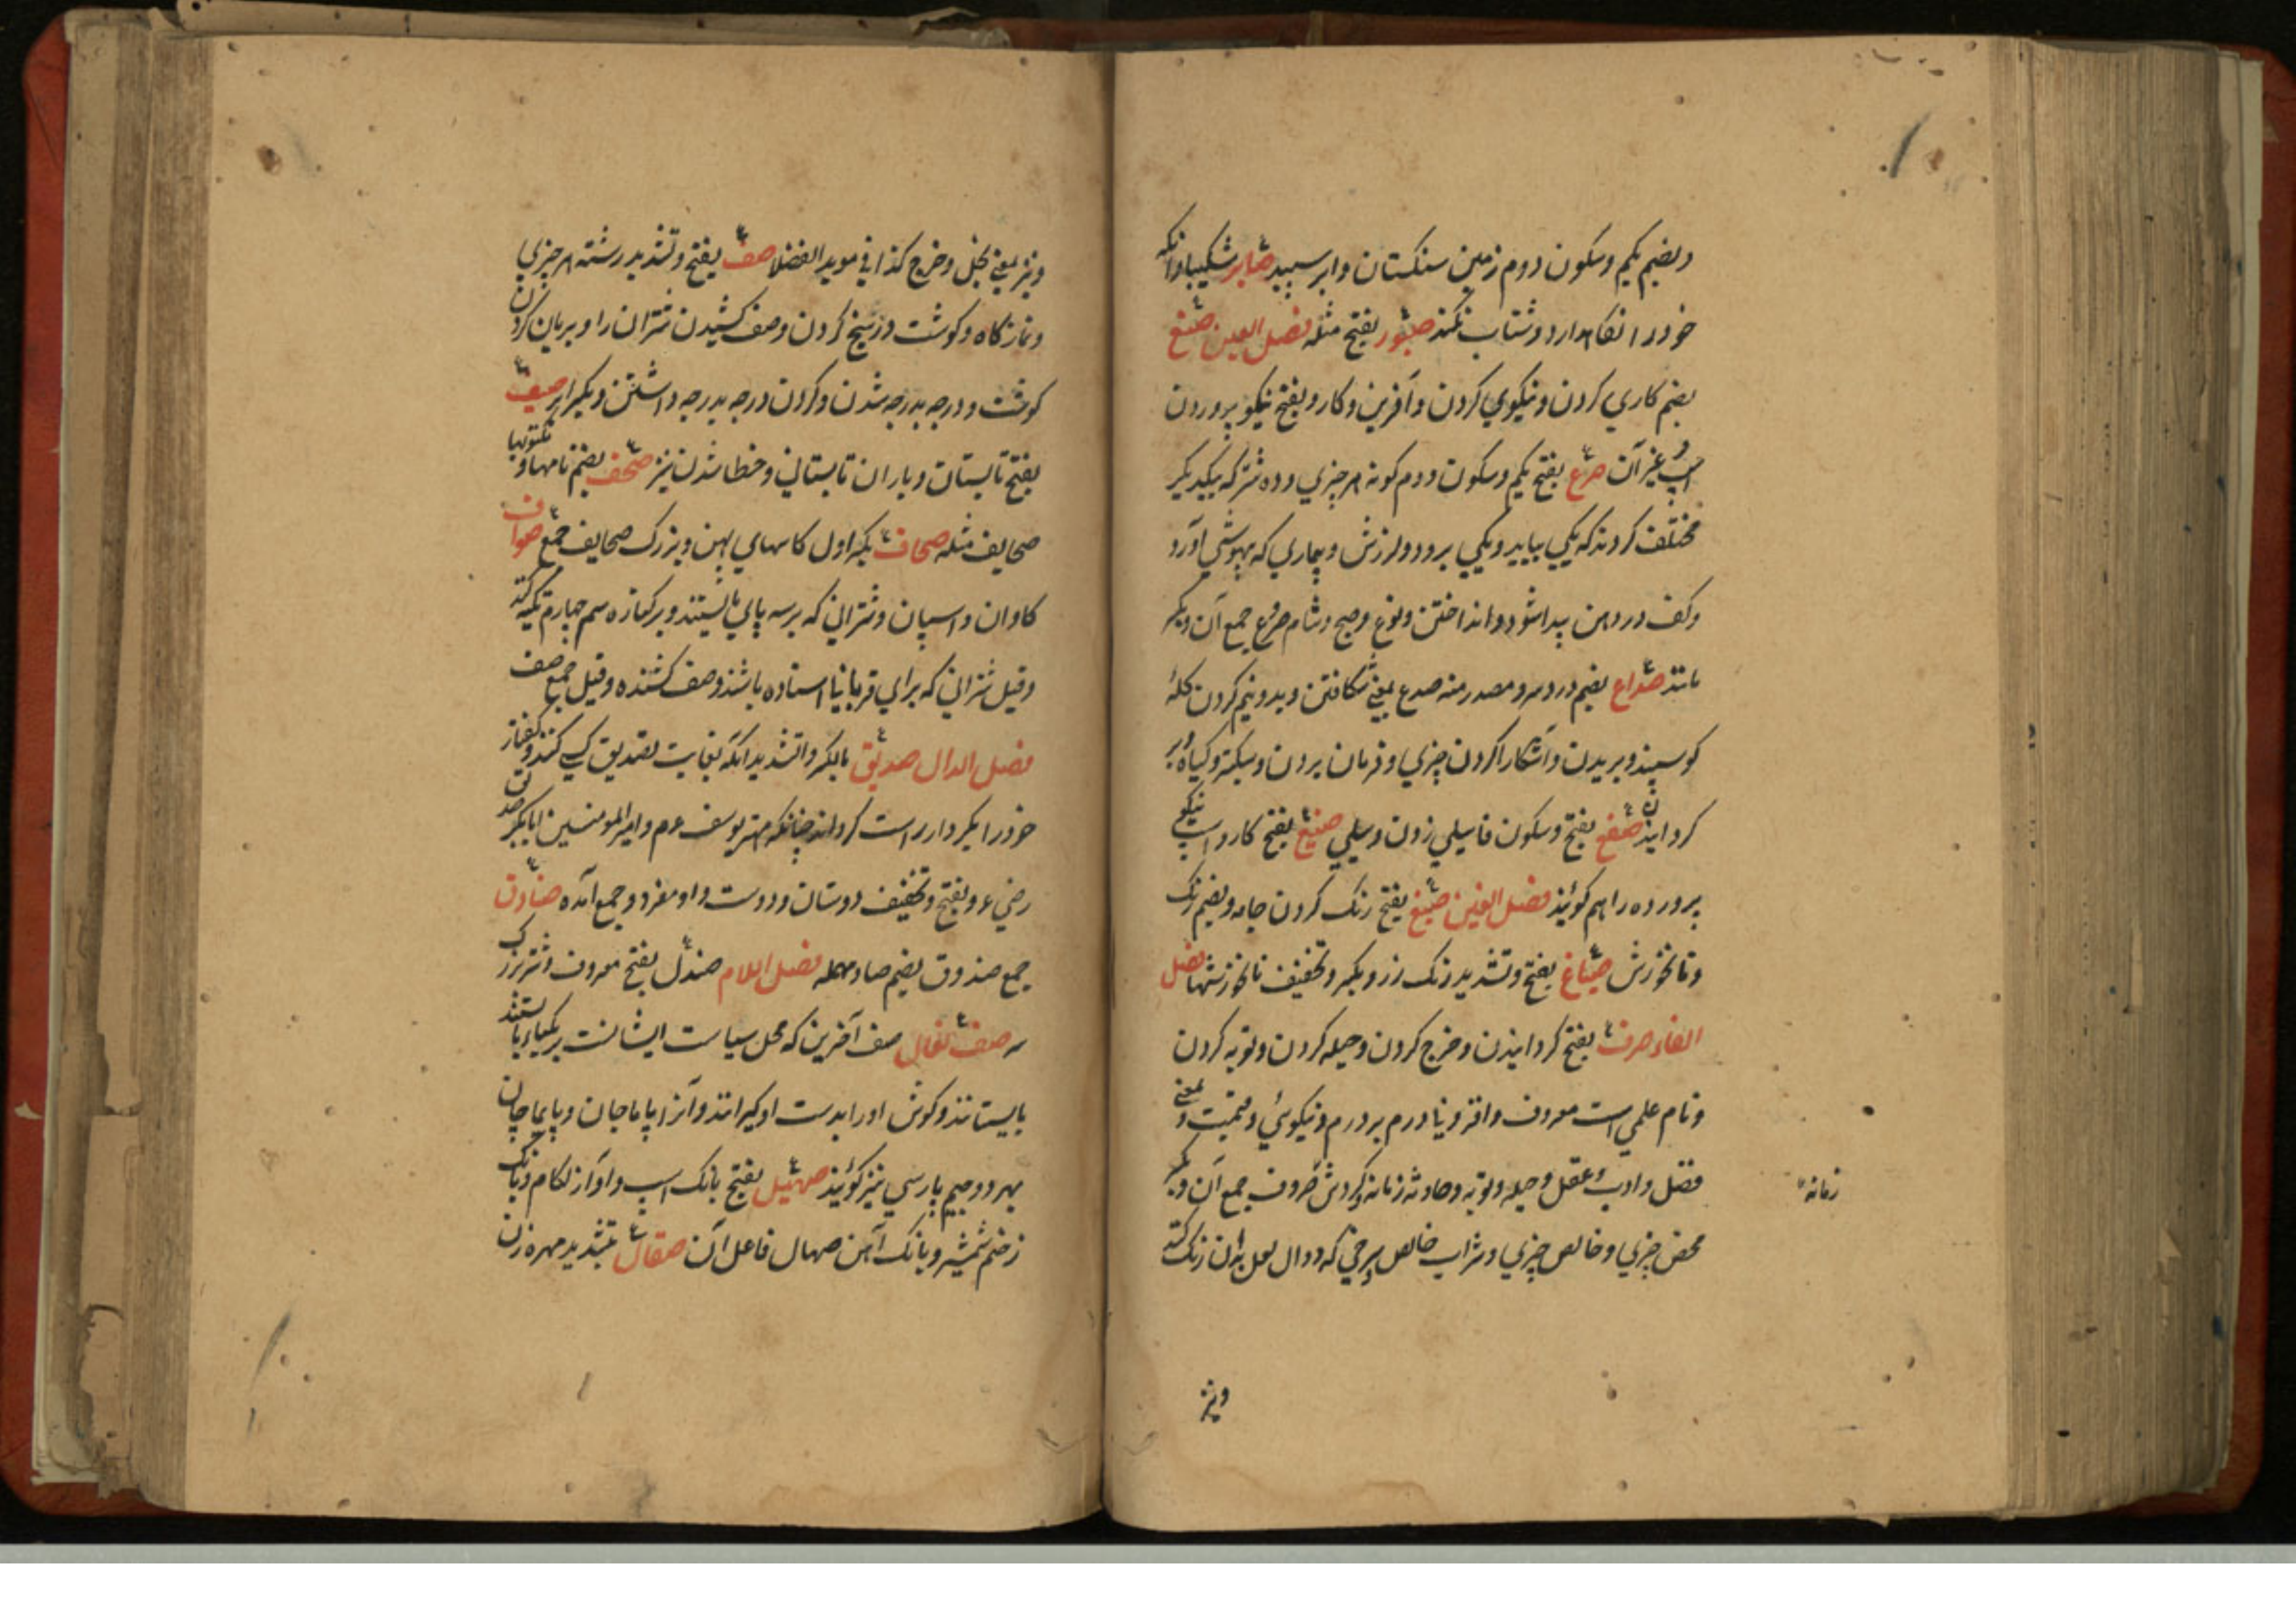 وبضم یکم وسکون دوم زمین سنکستان وابر سپید صابر شکیبا وانکه
خودرا نکاهدارد وشتاب نکند صبور بفتح مثله فصل العین صنع
بضم کاری کردن ونیکوی کردن وآفرین وکار وبفتح نیکو پروردن
اسپ وغیر آن صرع بفتح یکم وسکون دوم کونه هر چیزی ودو شتر که بیکدیکر
مختلف کردند که یکی بیاید ویکی برود ولرزش وبیماری که بیهوشی آورد
وکف در دهن پیدا شود وانداختن ونوع وصبح وشام صروع جمع آن وبکسر
مانند صداع بضم درد سر ومصدر منه صدع بمعنی شکافتن وبدو نیم کردن کله
کوسپند وبریدن وآشکارا کردن چیزی وفرمان بردن وشکستن وکیاه وبر
کردانیدن صفع بفتح وسکون فا سیلی زدن وسیلی صنیع بفتح کار واسپ نیکوی
پرورده را هم کویند فصل الغین صبغ بفتح رنک کردن جامه وبضم رنک
ونانخورش صباغ بفتح وتشدید رنک رز وبکسر وتخفیف نانخورشها فصل
الفاء صرف بفتح کردانیدن وخرج کردن وحیله کردن وتوبه کردن
ونام علمی است معروف وافزونیا درم بر درم ونیکوئی وقیمت وبمعنی
فضل وادب وعقل وحیله وتوبه وحادثه زمانه وکردش صروف جمع آن وبکسر
زمانه
محض چیزی وخالص چیزی وشراب خالص سرخی که دوال نعل بدان رنک کنند
ونیز
ونیز بمعنی بخل وخرج کذا فی موید الفضلا صف بفتح وتشدید رشته هر چیزی
ونماز کاه وکوشت در سیخ کردن وصف کشیدن شتران را وبریان کردن
کوشت ودرجه بدرجه شدن وکردن درجه بدرجه داشتن ودیکر ابر صیف
بفتح تابستان وباران تابستانی وخطا شدن تیر صحف بضم نامها ومکتوبها
صحایف مثله صحاف بکسر اول کاسهای پهن وبزرک صحایف جمع صواف
کاوان واسپان وشترانی که بر سه پای بایستند وبر کناره سم چهارم تکیه کند
وقیل شترانی که برای قربانیا استاده باشند وصف کشنده وقیل جمع صف
فصل الدال صدیق بالکسر والتشدید آنکه بغایت تصدیق کسی کند وکفتار
خودرا بکردار راست کرداند چنانکه مهتر یوسف عم وامیر المومنین ابابکر صدیق
رضی ع وبفتح وتخفیف دوستان ودوست واو مفرد وجمع آمده صنادق
جمع صندوق بضم صاد مهمله فصل اللام صندل بفتح معروف وشتر بزرک
سر صف نعال صف آفرین که محل سیاست ایشانست بر یکپاء بایستند
بایستانند وکوش اورا بدست او کیرانند وآنرا پاماجان وپایماچان
بهر دو جیم پارسی نیز کویند صهیل بفتح بانک اسپ وآواز لکام وبانک
زخم شمشیر وبانک آهن صهال فاعل آن صقال بتشدید مهره زن